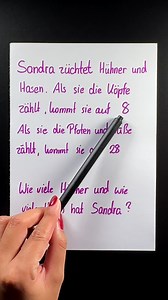 Sandra züchtet Hühner und
Hasen. Als sie die Köpfe
zählt, kommt sie auf 8
Als sie die Pfoten und
zählt, kommt sie 28
Wie viele und wie
hat Sandra?